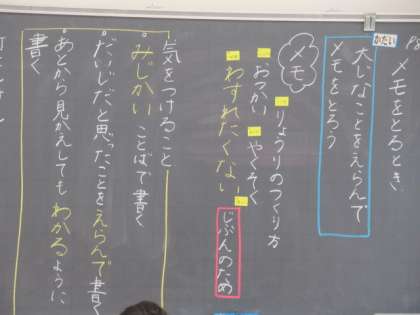 メモをとるとき
かだい
大じなことをえらんで
メモをとろう
メモ
りょうりのつくり方
おつかい
やくそく
わすれたくない
じぶんのため
気をつけること
・みじかいことばで書く
・だいじだと思ったことをえらんで書く
・あとから見かえしてもわかるように
書く